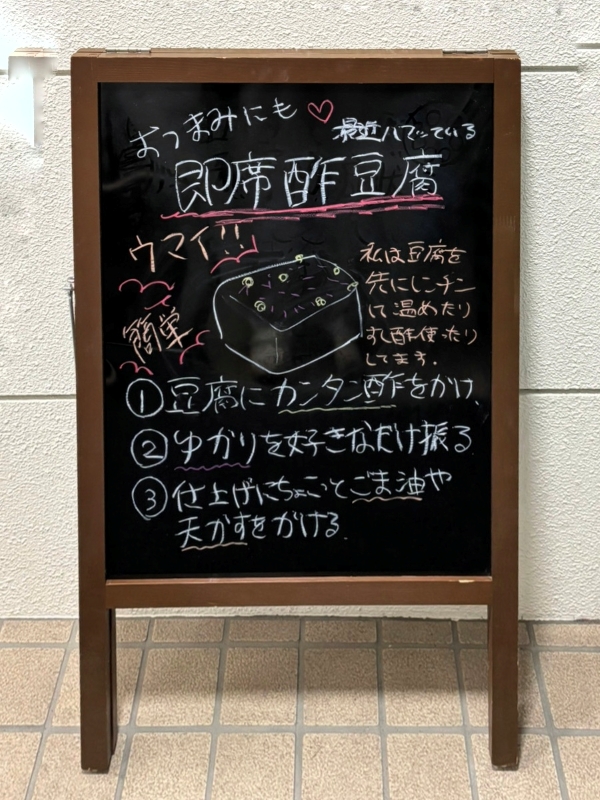 おつまみにも♡
最近ハマっている
即席酢豆腐
ウマイ!!
簡単
私は豆腐を
先にレンチン
して温めたり
すし酢使ったり
してます.
①豆腐にカンタン酢をかけ、
②ゆかりを好きなだけ振る
③仕上げにちょこっとごま油や
天かすをかける.